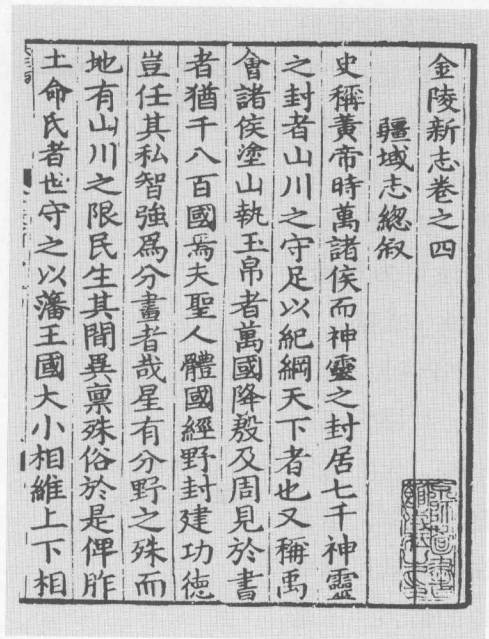 金陵新志卷之四
疆域志緫叙
史稱黃帝時萬諸侯而神靈之封居七千神靈
之封者山川之守足以紀綱天下者也又稱禹
會諸侯塗山執玉帛者萬國降殷及周見於書
者猶千八百國焉夫聖人體國經野封建功德
豈任其私智強爲分畫者哉星有分野之殊而
地有山川之限民生其間異稟殊俗於是俾胙
土命氏者世守之以藩王國大小相維上下相